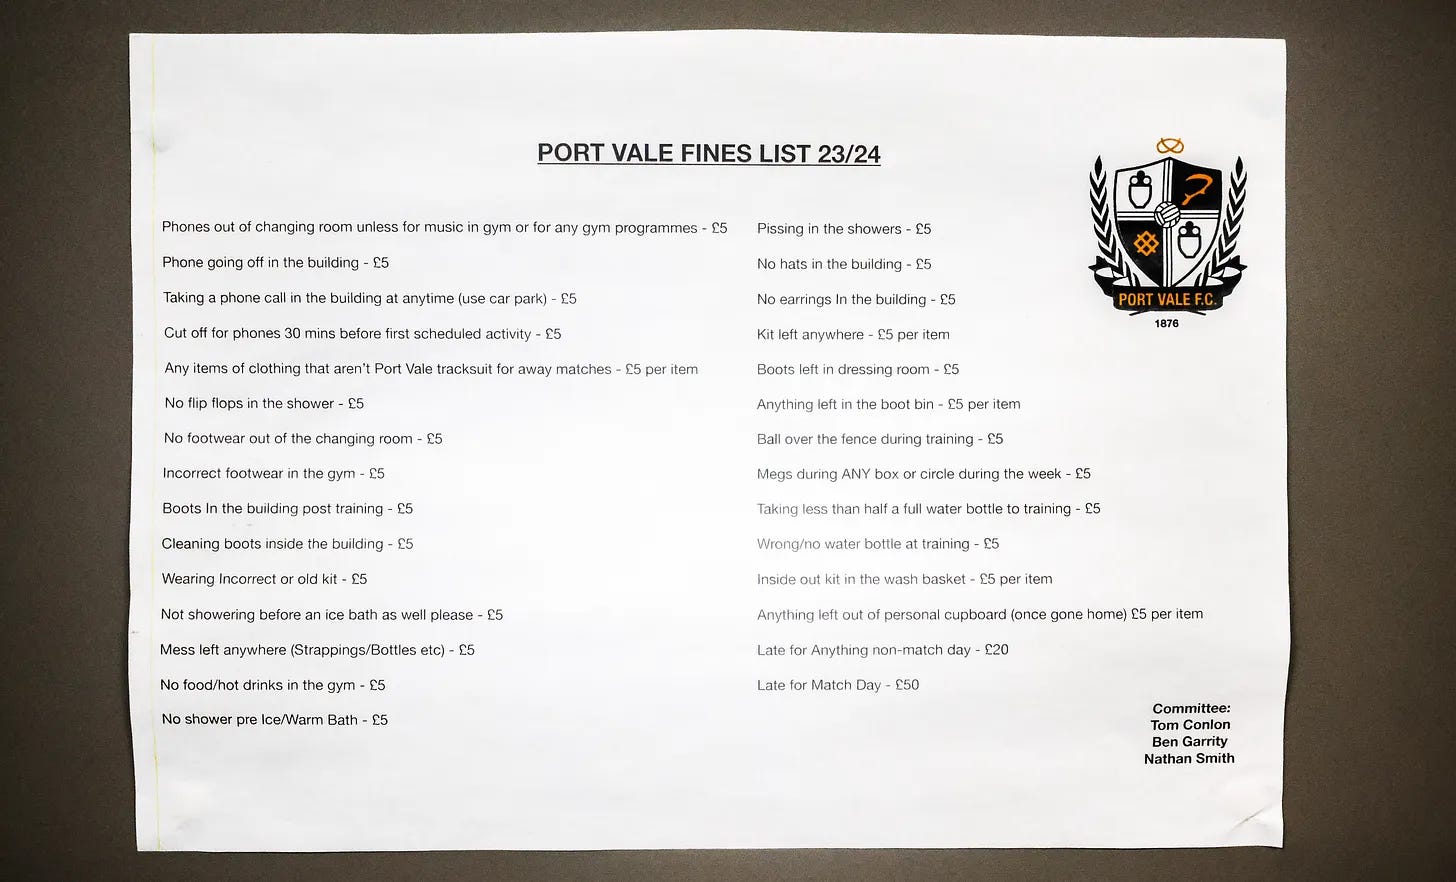 PORT VALE FINES LIST 23/24
Phones out of changing room unless for music in gym or for any gym programmes - £5
Phone going off in the building - £5
Taking a phone call in the building at anytime (use car park) - £5
Cut off for phones 30 mins before first scheduled activity - £5
Any items of clothing that aren't Port Vale tracksuit for away matches - £5 per item
No flip flops in the shower - £5
No footwear out of the changing room - £5
Incorrect footwear in the gym - £5
Boots In the building post training - £5
Cleaning boots inside the building - £5
Wearing Incorrect or old kit - £5
Not showering before an ice bath as well please - £5
Mess left anywhere (Strappings/Bottles etc) - £5
No food/hot drinks in the gym - £5
No shower pre Ice/Warm Bath - £5
Pissing in the showers - £5
No hats in the building - £5
No earrings In the building - £5
Kit left anywhere - £5 per item
Boots left in dressing room - £5
Anything left in the boot bin - £5 per item
Ball over the fence during training - £5
Megs during ANY box or circle during the week - £5
Taking less than half a full water bottle to training - £5
Wrong/no water bottle at training - £5
Inside out kit in the wash basket - £5 per item
Anything left out of personal cupboard (once gone home) £5 per item
Late for Anything non-match day - £20
Late for Match Day - £50
PORT VALE F.C.
1876
Committee:
Tom Conlon
Ben Garrity
Nathan Smith